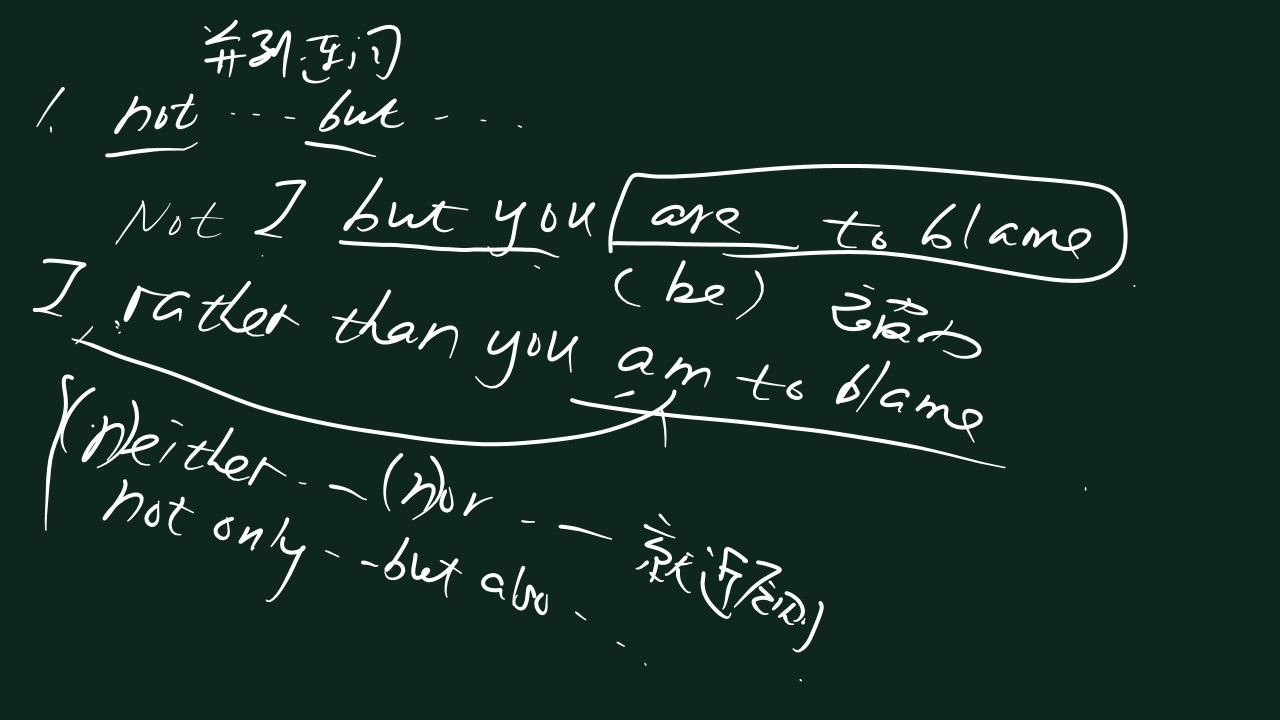 并列连词
1. not ... but ...
Not I but you are to blame
(be)
I rather than you am to blame
(n)either ... (n)or ... 就近原则
not only ... but also ...